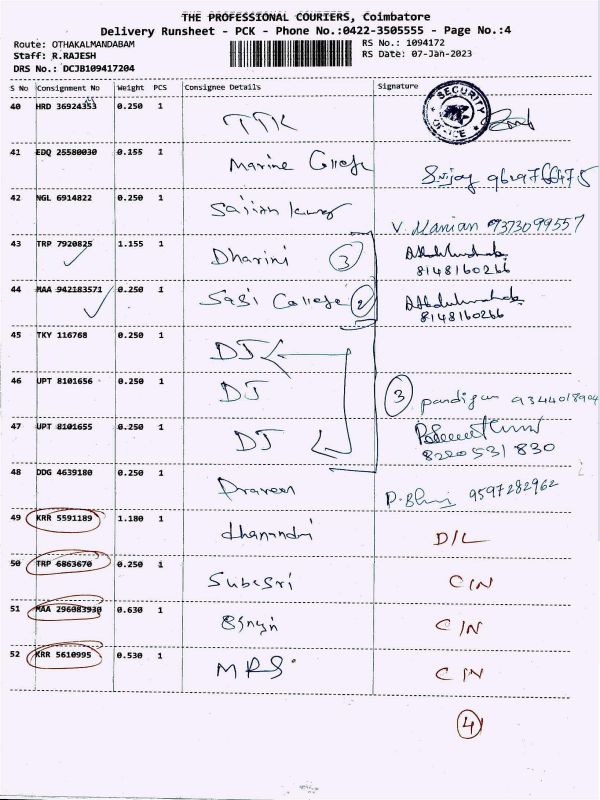 THE PROFESSIONAL COURIERS, Coimbatore
Delivery Runsheet - PCK - Phone No.:0422-3505555 - Page No.:4
Route: OTHAKALMANDABAM
RS No.: 1094172
Staff: R.RAJESH
RS Date: 07-Jan-2023
DRS No.: DCJB109417204
S No Consignment No Weight PCS Consignee Details Signature
40 HRD 36924353 0.250 1 TTK
SECURITY OFFICE
41 EDQ 25580030 0.155 1 Marine College
42 NGL 6914822 0.250 1 V. Manian 9373099557
43 TRP 7920825 1.155 1 Dharini 3
8148160266
44 MAA 942183571 0.250 1 Sasi College 2
8148160266
45 TKY 116768 0.250 1 DJ
46 UPT 8101656 0.250 1 DJ 3 pandiyan 9344018904
47 UPT 8101655 0.250 1 DJ
8220531830
48 DDG 4639180 0.250 1 Praveen 9597282962
49 KRR 5591189 1.180 1 D/L
50 TRP 6863670 0.250 1 Subasri C/N
51 MAA 296083930 0.630 1 C/N
52 KRR 5610995 0.530 1 MRS C/N
4